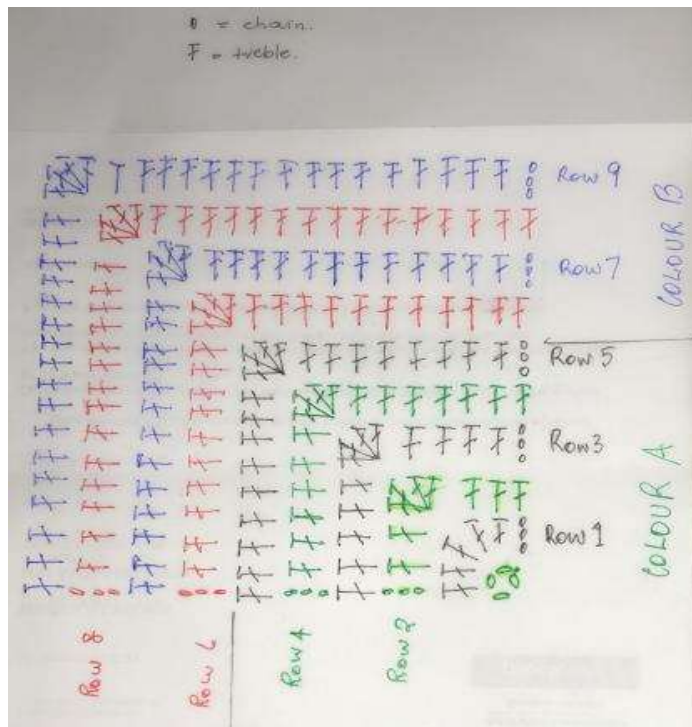 0 = chain.
Ŧ = treble.
Row 9
COLOUR B
Row 7
Row 5
Row 3
COLOUR A
Row 1
Row 8
Row 6
Row 4
Row 2